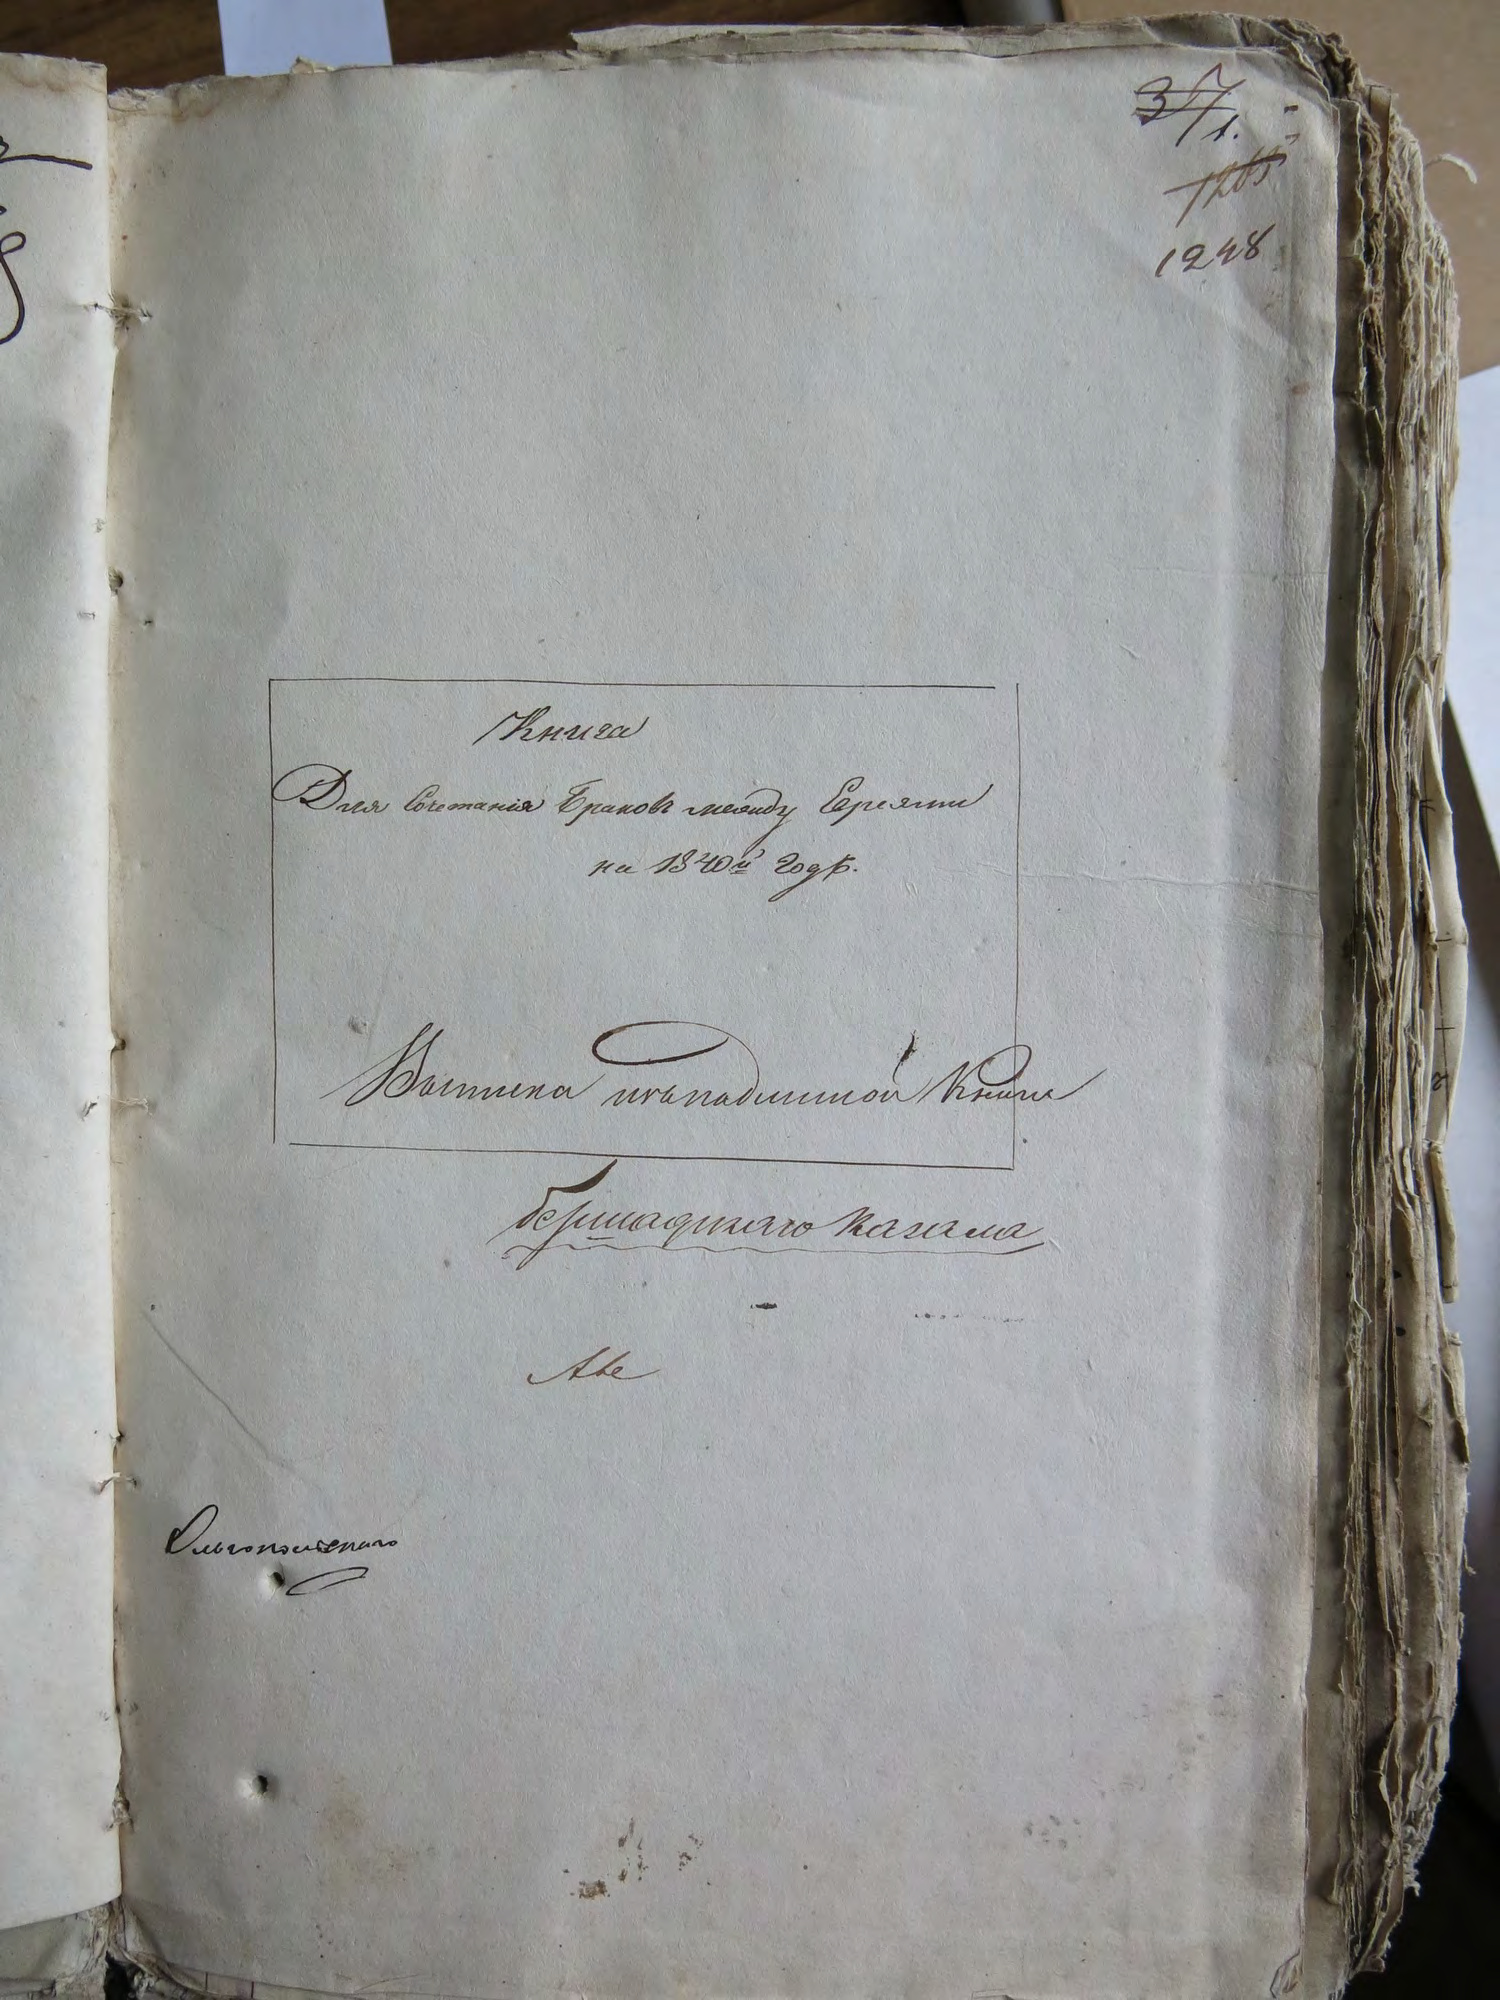 37
1.
1265
1248
Книга
Для Сочетанія Браковъ между Евреями
на 1840й годъ.
Выписка Книги
бершадскаго Кагала
Ольгопольскаго